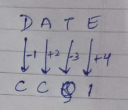 D A T E
-1 +2 -3 +4
C C Q I